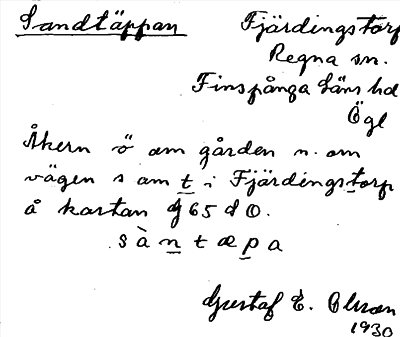 Sandtäppan
Fjärdingstorp
Regna sn.
Finspånga läns hd
Ögl
Åkern ö om gården n. om
vägen s om t i Fjärdingstorp
å kartan dg 65 d O.
s à n t æ p a
Gustaf E. Olsson
1930